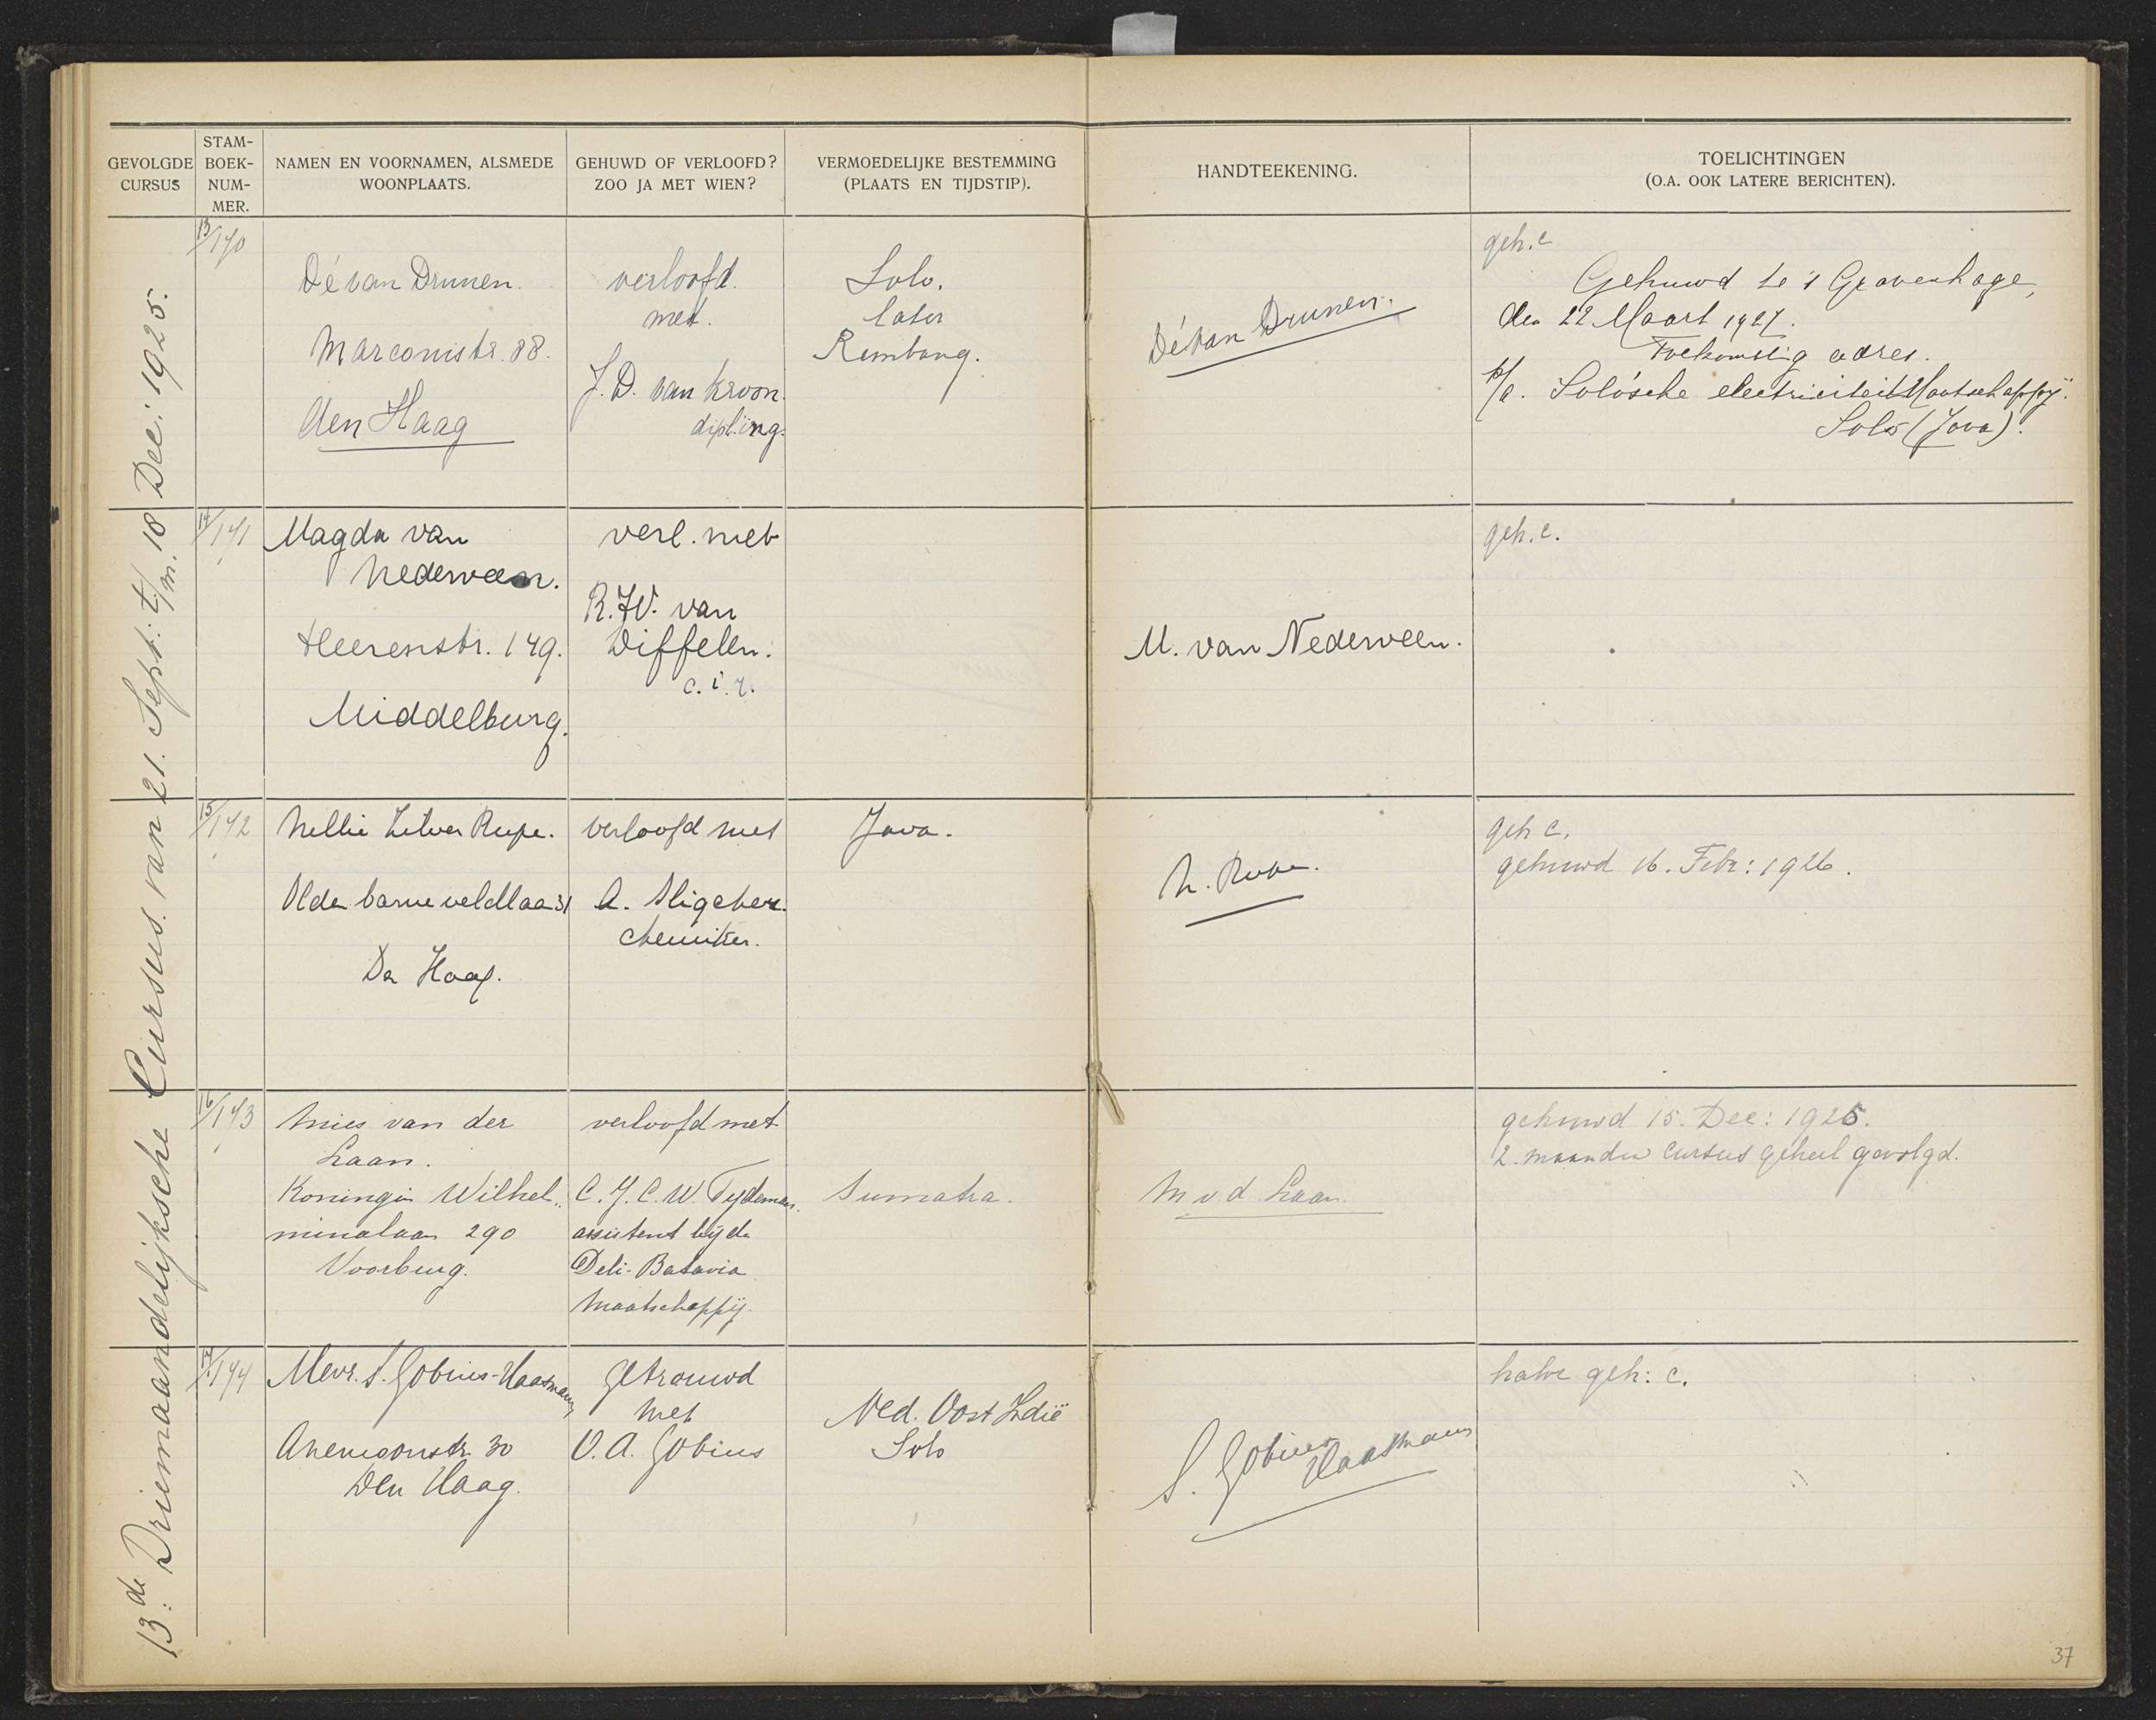 GEVOLGDE CURSUS
STAM-BOEK-NUM-MER.
NAMEN EN VOORNAMEN, ALSMEDE WOONPLAATS.
GEHUWD OF VERLOOFD? ZOO JA MET WIEN?
VERMOEDELIJKE BESTEMMING (PLAATS EN TIJDSTIP).
HANDTEEKENING.
TOELICHTINGEN (O.A. OOK LATERE BERICHTEN).
13de Driemaandelijksche Cursus van 21. Sept: t/m. 18 Dec: 1925.
13/170
Dé van Drunen.
Marconistr. 88.
den Haag
verloofd.
met.
J. D. van Kroon.
dipl. ing.
Solo.
later
Rembang.
Dé van Drunen.
geh. c
Gehuwd te 's Gravenhage,
den 22 Maart 1927.
Toekomstig adres.
p/a. Solo'sche electriciteit Maatschappij.
Solo (Java).
14/171
Magda van
Nederveen.
Heerenstr. 149.
Middelburg.
verl. met
R. W. van
Diffelen.
c. i. r.
M. van Nederveen.
geh. c.
15/172
Nellie Rupe.
Olden barneveldlaan 31
Den Haag.
verloofd met
A. Sligcher.
chemiker.
Java.
N. Rupe.
geh c.
gehuwd 16. Febr: 1926.
16/173
Mies van der
Laan.
Koningin Wilhel-
minalaan 290
Voorburg.
verloofd met
C. J. C. W. Tydeman.
assistent bij de
Deli-Batavia
Maatschappij.
Sumatra.
M v d Laan.
gehuwd 15. Dec: 1925.
2. maanden cursus geheel gevolgd.
17/174
Mevr. S. Gobius-Haasmans
Anemoonstr. 30
Den Haag.
getrouwd
met
O. A. Gobius
Ned. Oost Indië
Solo
S. Gobius
Haasmans
halve geh: c.
37